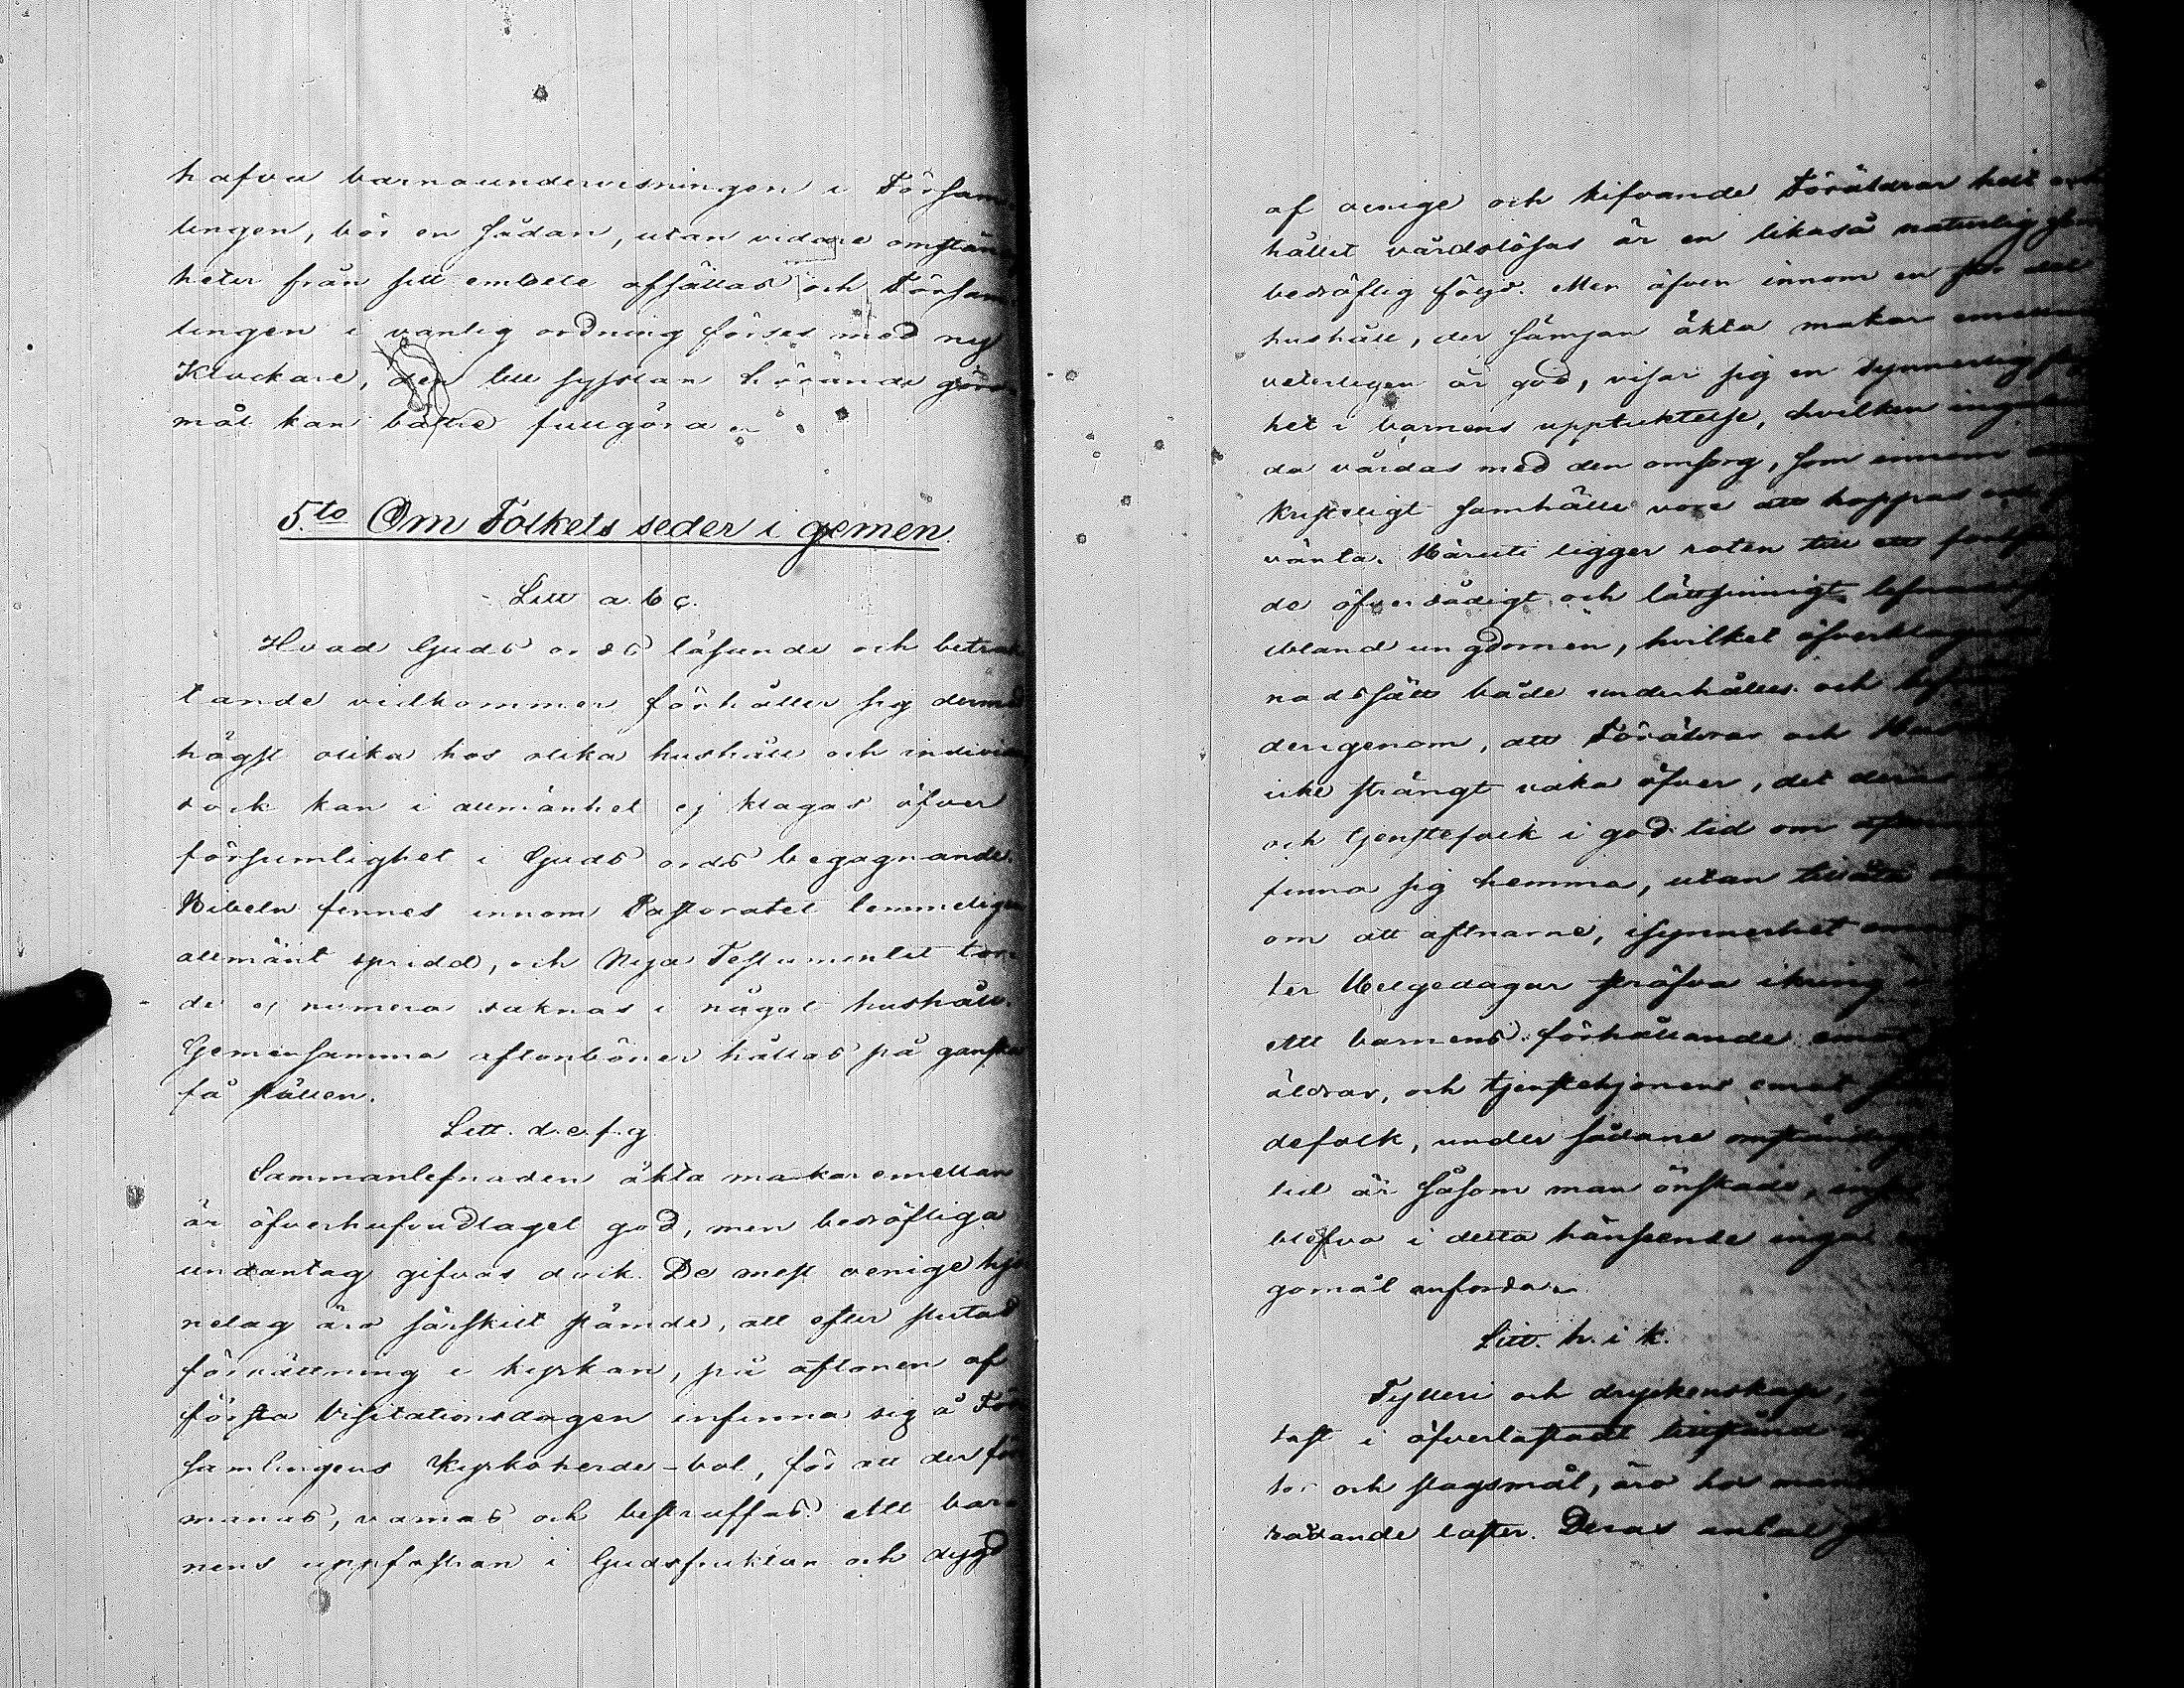 hafva barnaundervisningen i Försam
lingen, bör en sådan, utan vidare omstän
heter från sitt embete afsättas och Försam
lingen i vanlig ordning förses med ny
Klockare, den till sysslan hörande göro
mål kan bättre fullgöra.
5.to Om Folkets seder i gemen.
Litt a. b c.
Hvad Guds ords läsande och betrak
tande vidkommer förhåller sig dermed
högst olika hos olika hushåll och individer
dock kan i allmänhet ej klagas öfver
försumlighet i Guds ords begagnande.
Bibeln finnes innom Pastoratet temmeligen
allmänt spridd, och Nya Testamentet tor-
de ej numera saknas i något hushåll.
Gemensamma aftonböner hållas på ganska
få ställen.
Litt. d. e. f. g.
Sammanlefnaden äkta makar emellan
är öfverhufvudtaget god, men bedröfliga
undantag gifvas dock. De mest oenige hjo
nelag äro särskilt stämde, att efter slutad
förrättning i kyrkan, på aftonen af
första Visitationsdagen infinna sig å För
samlingens Kyrkoherde-bol, för att der för
manas, varnas och bestraffas. Att bar
nens uppfostran i Gudsfruktan och dygd
af oenige och kifvande Föräldrar helt och
hållit vårdslösas är en likaså naturlig som
bedröflig följd. Men äfven innom en stor del
hushåll, der sämjan äkta makar emellan
veterligen är god, visar sig en synnerlig
het i barnens upptuktelse, hvilken ingalun
da vårdas med den omsorg, som innom
kristeligt samhälle vore att hoppas och
vänta. Häruti ligger roten till ett
de öfverdådigt och lättsinnigt
ibland ungdomen, hvilket öfverklagade
nadssätt både underhålles och
derigenom, att Föräldrar och
icke strängt vaka öfver, det deras
och tjenstefolk i god tid om aftnarne
finna sig hemma, utan tillåta dem
om att aftnarne, isynnerhet
ter Helgedagar ströfva ikring
Att barnens förhållande emot
äldrar, och tjenstehjonens emot
defolk, under sådane omständigheter
tid är såsom man önskade,
blefva i detta hänseende inga
gomål anförda.
Litt. h. i k.
Fylleri och dryckenskap,
tast i öfverlastadt tillstånd
tor och slagsmål, äro här
rådande laster. Deras antal